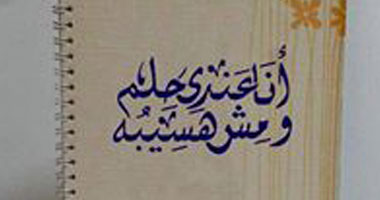 أنا عندى حلم
و مش هسيبه